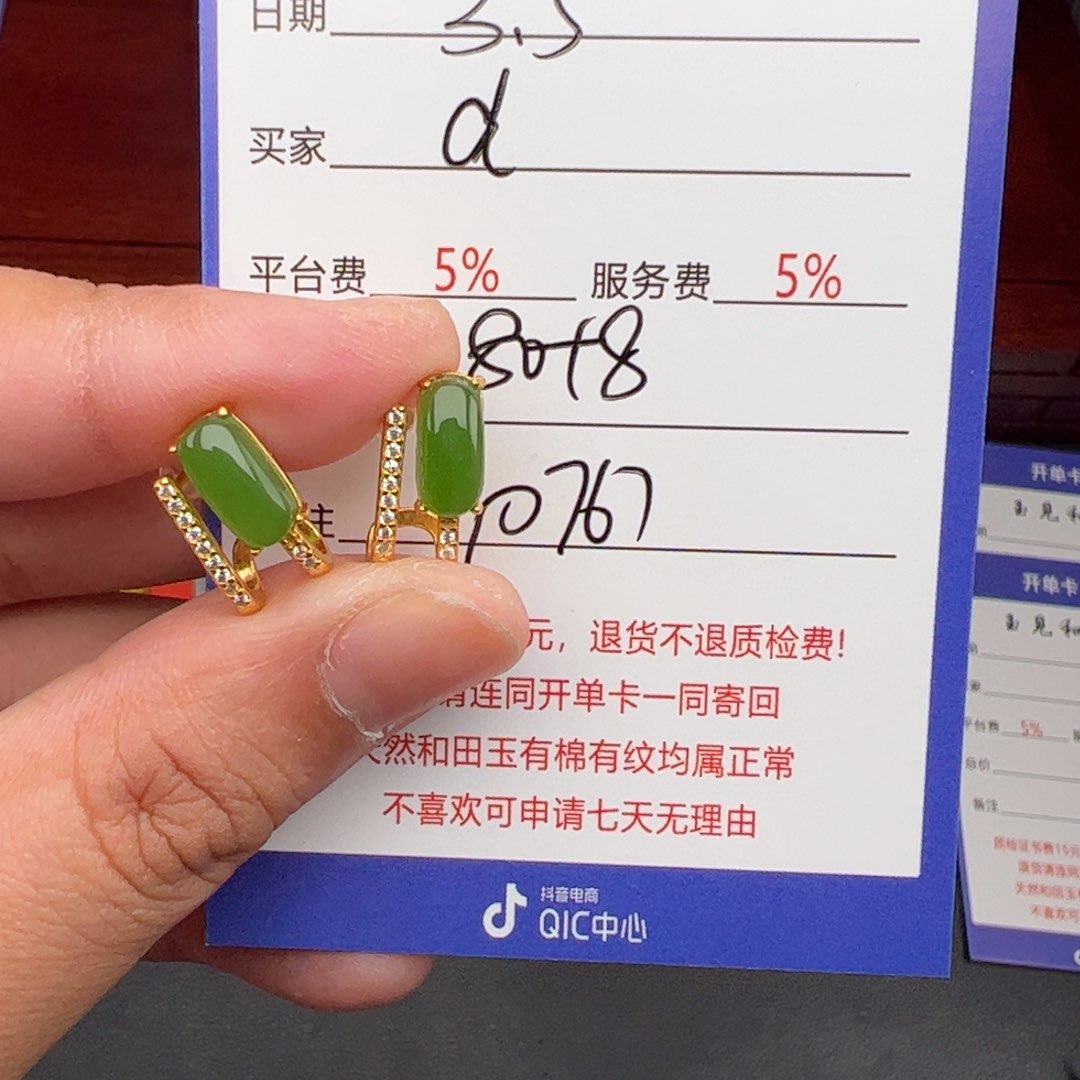 日期 3.3
买家 d
平台费 5% 服务费 5%
80+8
注 p0767
元，退货不退质检费！
请连同开单卡一同寄回
天然和田玉有棉有纹均属正常
不喜欢可申请七天无理由
抖音电商
QIC中心
开单卡
玉见和
开单卡
玉见和
家
平台费 5%
总价
备注
质检证书费15元
退货请连同
天然和田玉
不喜欢可